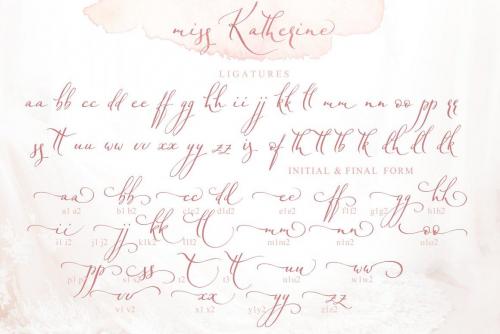 miss Katherine
LIGATURES
aa bb cc dd ee ff gg hh ii jj kk ll mm nn oo pp qq
ss tt uu ww vv xx yy zz is of th tt tb tk dh dl dk
INITIAL & FINAL FORM
aa bb cc dd ee ff gg hh
a1 a2 b1 b2 d1d2 e1e2 f1f2 g1g2 h1h2
ii jj kk ll mm nn oo
i1 i2 j1 j2 k1k2 l1l2 m1m2 n1n2 o1o2
pp ss t tt uu ww
p1 p2 s1 s2 t2 t3 u1u2 w1w2
vv xx yy zz
v1 v2 x1 x2 y1y2 z1z2